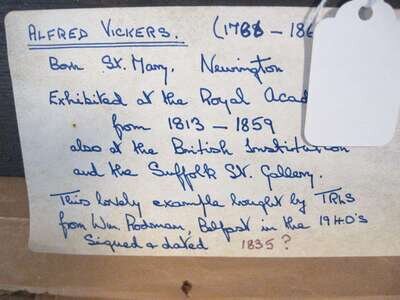 ALFRED VICKERS. (1786 – 186
Born St. Mary, Newington
Exhibited at the Royal Acad
from 1813 – 1859
also at the British Institution
and the Suffolk St. Gallery.
This lovely example bought by TRLS
from Wm Rodman, Belfast in the 1940's
Signed & dated 1835?